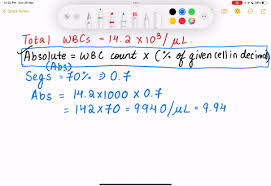 Quick Notes
Total WBCs = 14.2 x 10³ / µL
Absolute = WBC count x (% of given cell in decimal)
(Abs)
Segs = 70% ⇒ 0.7
Abs = 14.2 x 1000 x 0.7
= 142 x 70 = 9940 / µL = 9.94